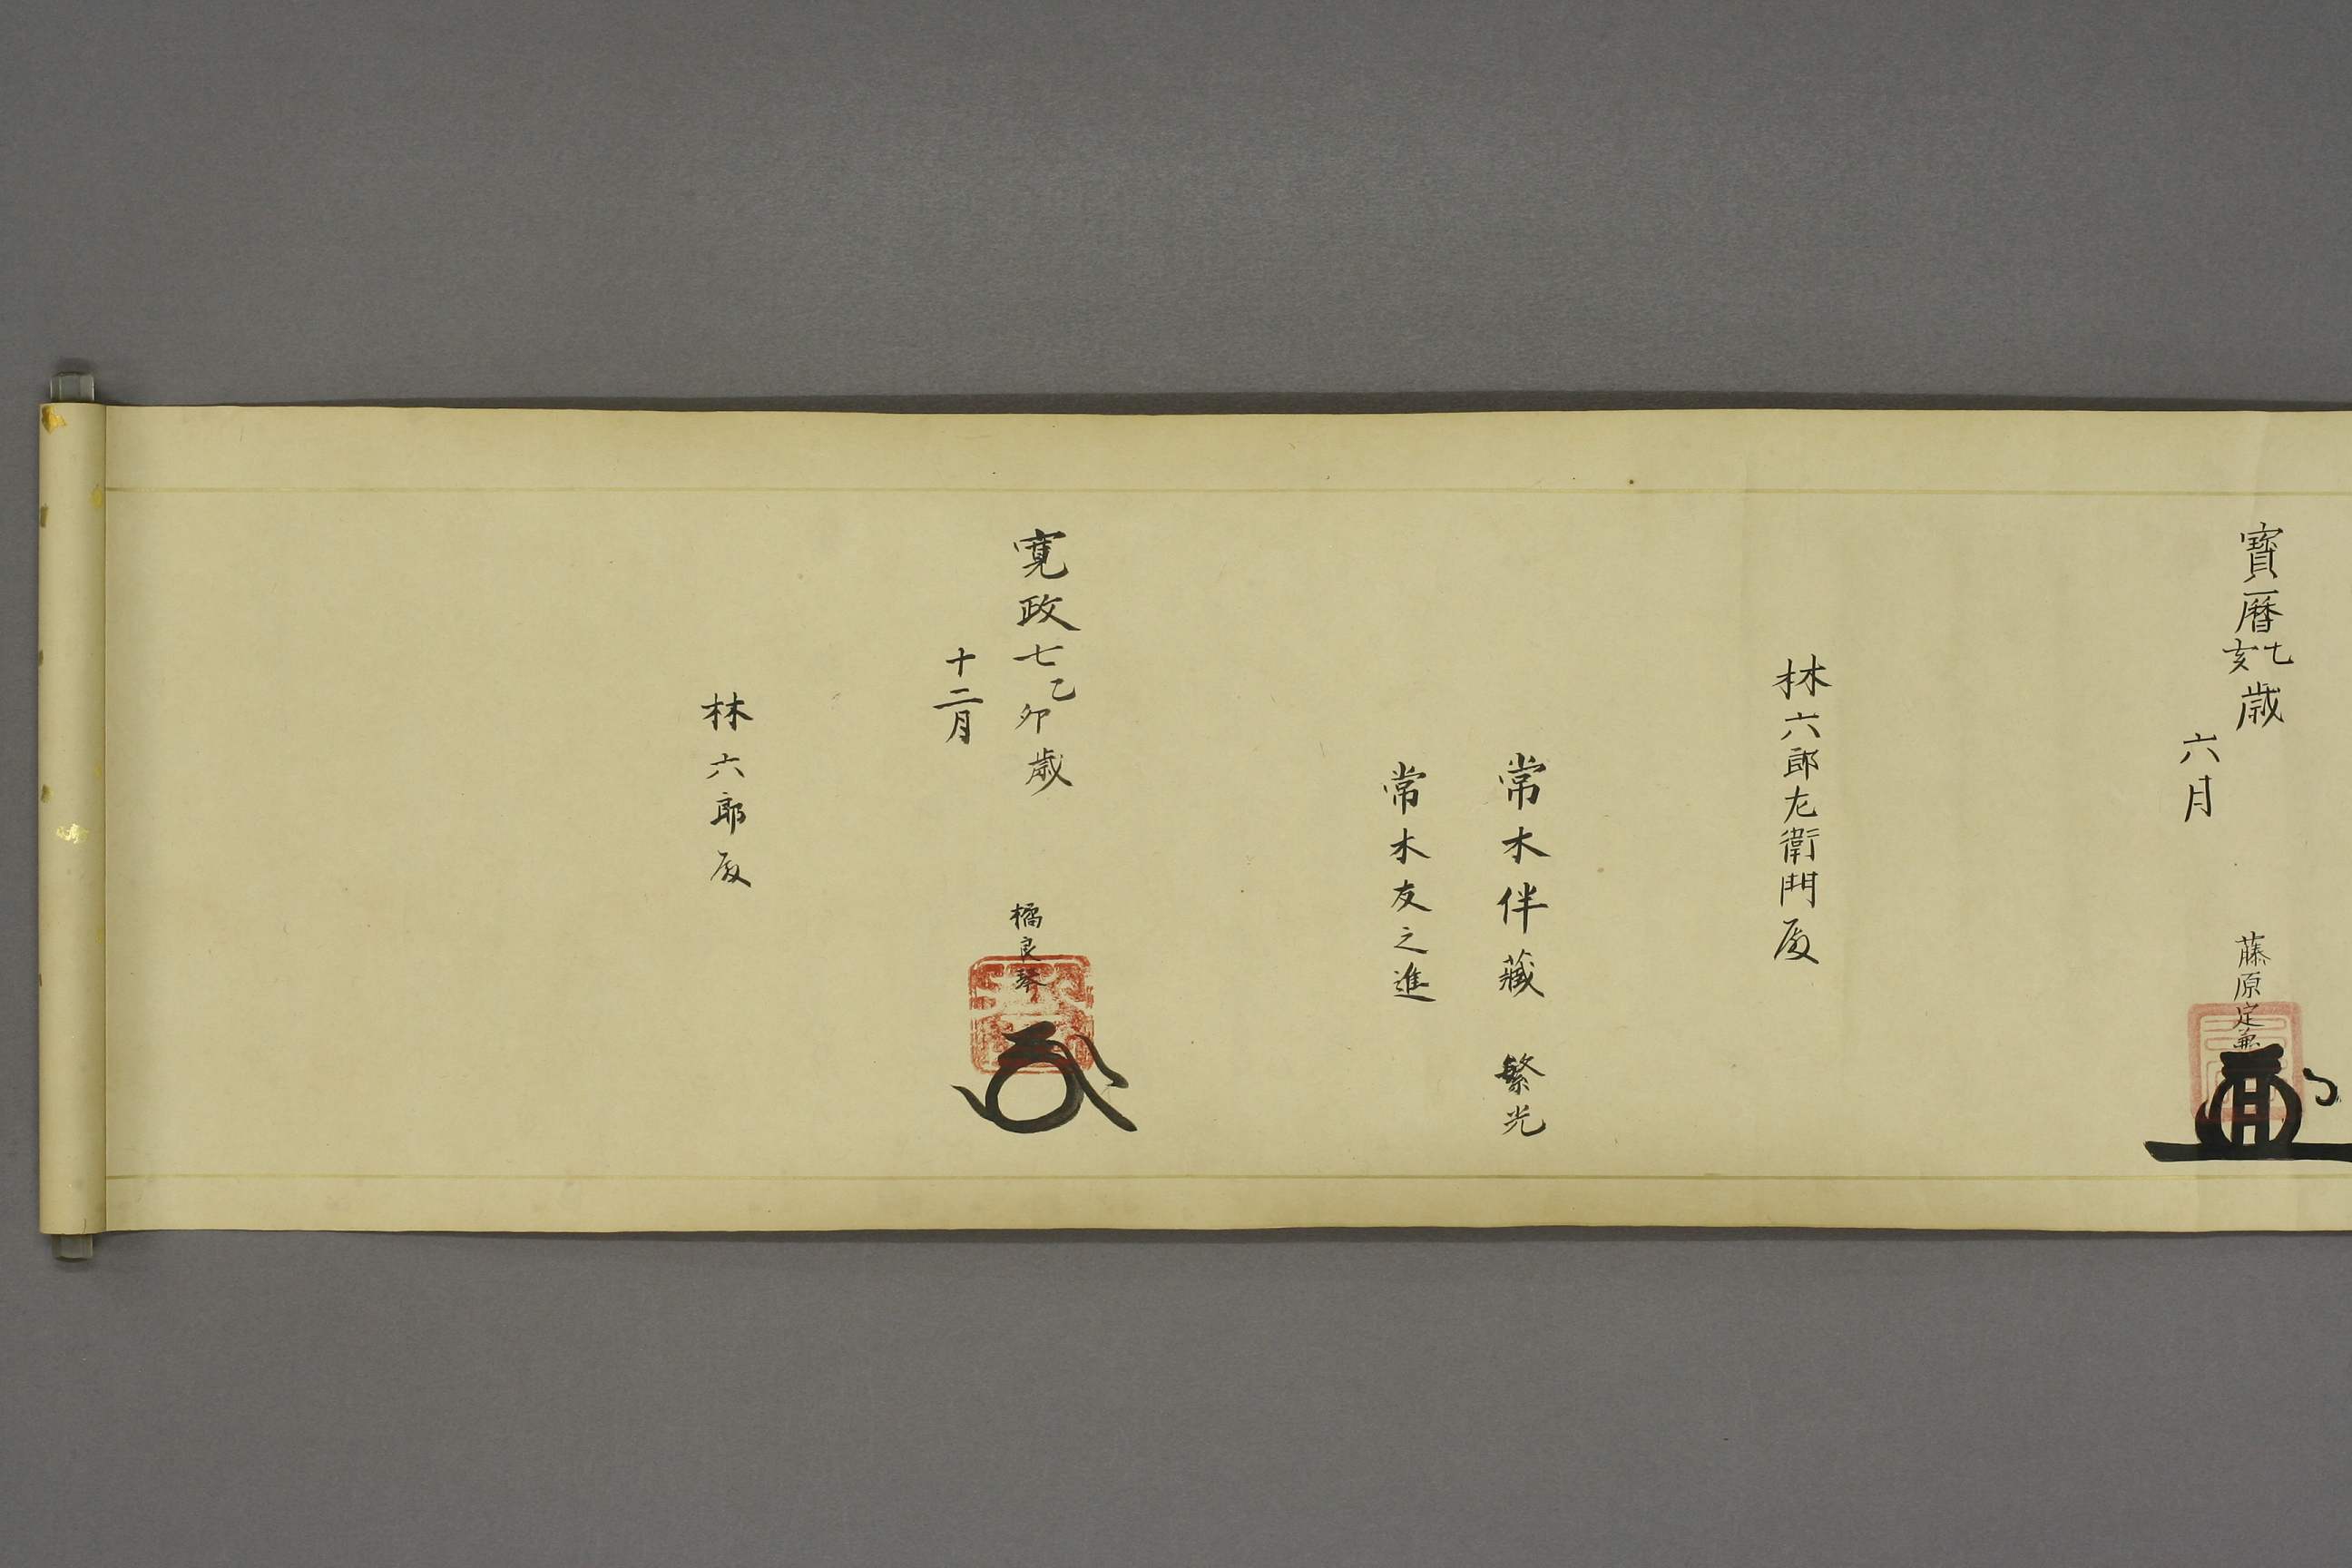 寶暦乙亥歳
六月
藤原定兼
林六郎左衛門殿
常木伴藏 繁光
常木友之進
寛政七乙卯歳
十二月
橘良琴
林六郎殿